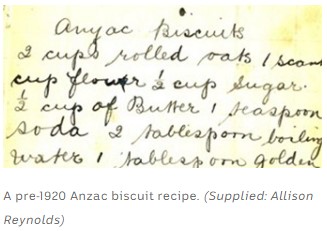 Anzac Biscuits
2 cups rolled oats 1 scant
cup flower ½ cup sugar.
½ cup of Butter 1 teaspoon
soda 2 tablespoon boiling
water 1 tablespoon golden
A pre-1920 Anzac biscuit recipe. (Supplied: Allison
Reynolds)